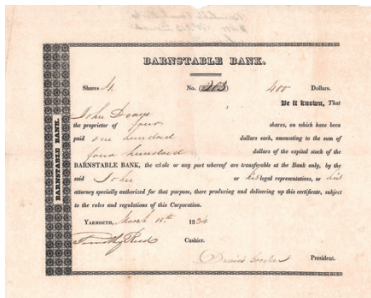 BARNSTABLE BANK.
Shares 4 No. (203) 400 Dollars.
Be it known, That
John
the proprietor of four shares, on which have been
paid one hundred dollars each, amounting to the sum of
four hundred dollars of the capital stock of the
BARNSTABLE BANK, the whole or any part whereof are transferable at the Bank only, by the
said John or his legal representatives, or his
attorney specially authorized for that purpose, there producing and delivering up this certificate, subject
to the rules and regulations of this Corporation.
YARMOUTH, March 18
Timothy Reed Cashier.
President.
BARNSTABLE BANK.